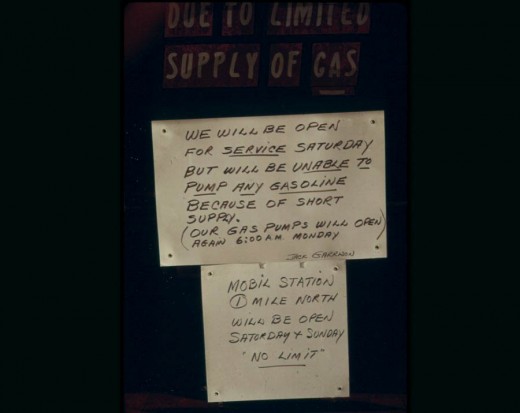 DUE TO LIMITED
SUPPLY OF GAS
WE WILL BE OPEN
FOR SERVICE SATURDAY
BUT WILL BE UNABLE TO
PUMP ANY GASOLINE
BECAUSE OF SHORT
SUPPLY.
(OUR GAS PUMPS WILL OPEN)
AGAIN 6:00 A.M. MONDAY
MOBIL STATION
1 MILE NORTH
WILL BE OPEN
SATURDAY & SUNDAY
"NO LIMIT"